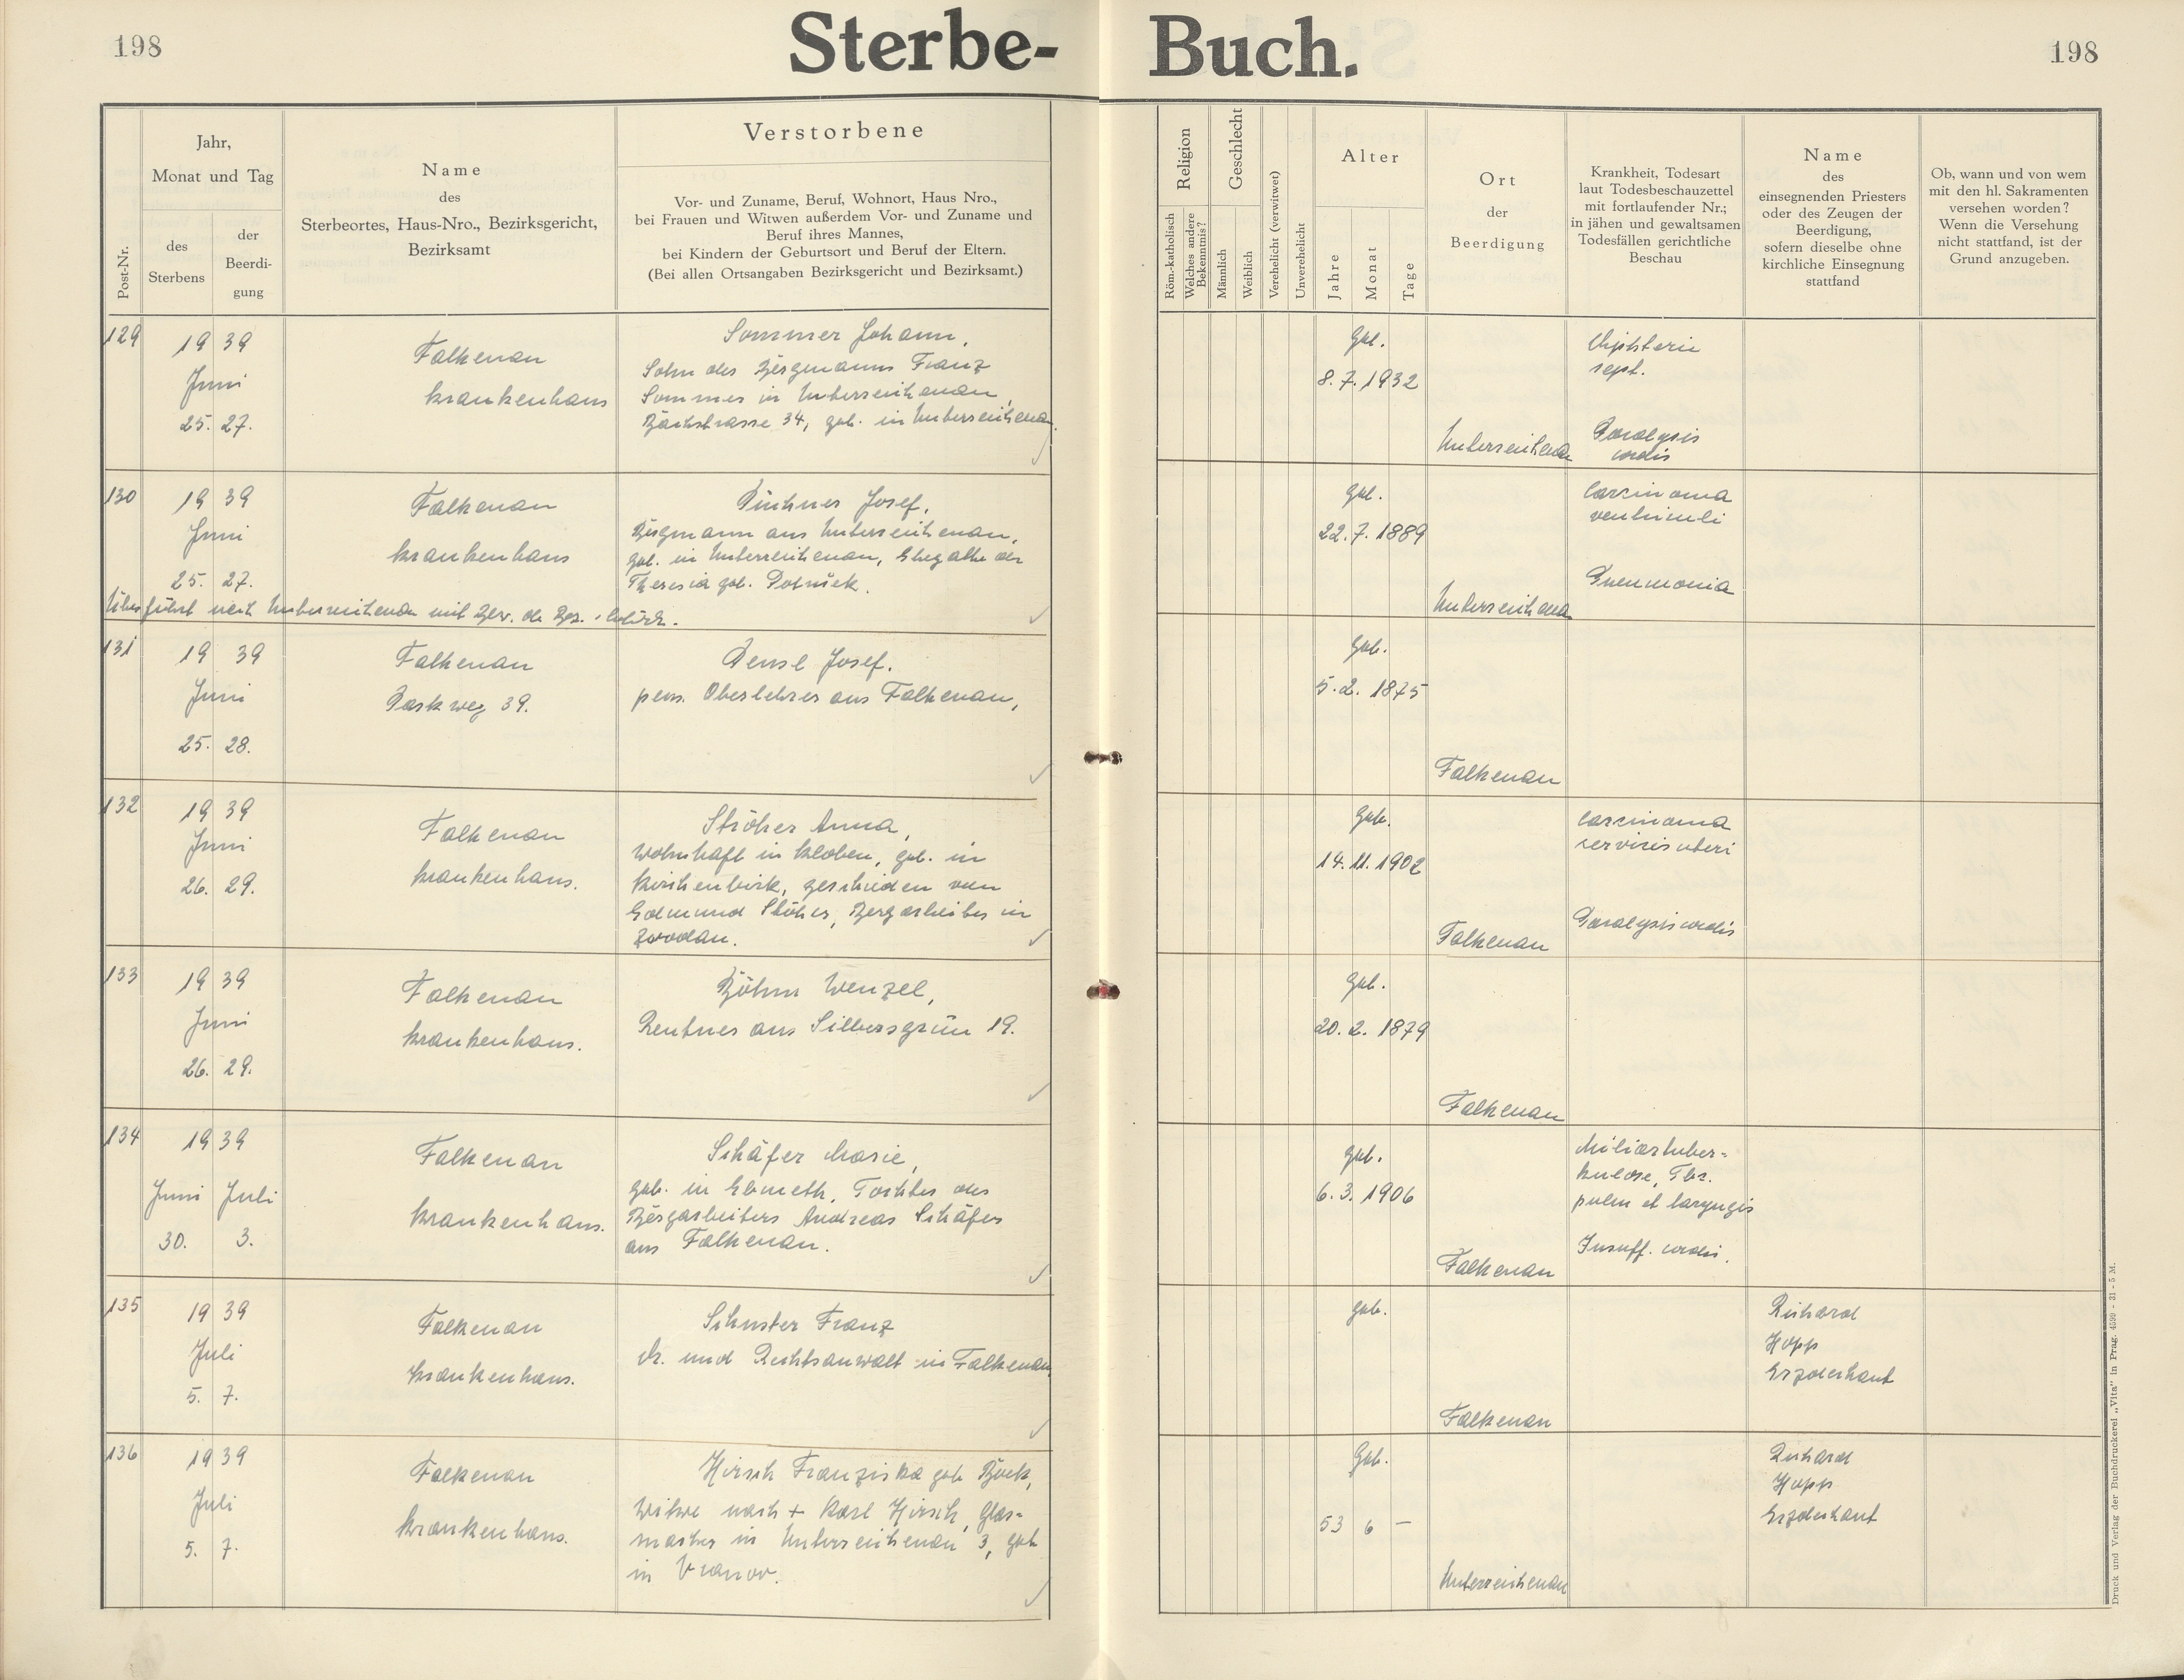 198
Sterbe-
Buch.
198
Post-Nr.
Jahr,
Monat und Tag
des
Sterbens
der
Beerdi-
gung
Name
des
Sterbeortes, Haus-Nro., Bezirksgericht,
Bezirksamt
Verstorbene
Vor- und Zuname, Beruf, Wohnort, Haus Nro.,
bei Frauen und Witwen außerdem Vor- und Zuname und
Beruf ihres Mannes,
bei Kindern der Geburtsort und Beruf der Eltern.
(Bei allen Ortsangaben Bezirksgericht und Bezirksamt.)
Religion
Röm.-katholisch
Welches andere
Bekenntnis?
Geschlecht
Männlich
Weiblich
Verehelicht (verwitwet)
Unverehelicht
Alter
Jahre
Monat
Tage
Ort
der
Beerdigung
Krankheit, Todesart
laut Todesbeschauzettel
mit fortlaufender Nr.;
in jähen und gewaltsamen
Todesfällen gerichtliche
Beschau
Name
des
einsegnenden Priesters
oder des Zeugen der
Beerdigung,
sofern dieselbe ohne
kirchliche Einsegnung
stattfand
Ob, wann und von wem
mit den hl. Sakramenten
versehen worden?
Wenn die Versehung
nicht stattfand, ist der
Grund anzugeben.
129
19 39
Juni
25. 27.
Falkenau
Krankenhaus
Sommer Johann,
Sohn des Bergmanns Franz
Sommer in Unterreichenau,
Bachstrasse 34, geb. in Unterreichenau.
geb.
8. 7. 1932
Unterreichenau
Diphterie
sept.
Paralysis
cordis
130
19 39
Juni
25. 27.
Falkenau
Krankenhaus
Josef,
Bergmann aus Unterreichenau,
geb. in Unterreichenau, Ehegatte der
Theresia geb.
Überführt nach Unterreichenau mit Bew. der Bez.
geb.
22. 7. 1889
Unterreichenau
Carcinoma
ventriculi
Pneumonia
131
19 39
Juni
25. 28.
Falkenau
Parkweg 39.
Josef.
pens. Oberlehrer aus Falkenau,
geb.
5. 2. 1875
Falkenau
132
19 39
Juni
26. 29.
Falkenau
Krankenhaus.
Ströher Anna,
wohnhaft in Kloben, geb. in
Kirchenbirk, geschieden von
Edmund Ströher, Bergarbeiter in
Zwodau.
geb.
14. 11. 1902
Falkenau
Carcinoma
cervicis uteri
Paralysis cordis
133
19 39
Juni
26. 29.
Falkenau
Krankenhaus.
Böhm Wenzel,
Rentner aus Silbersgrün 19.
geb.
20. 2. 1879
Falkenau
134
19 39
Juni Juli
30. 3.
Falkenau
Krankenhaus.
Schäfer Marie,
geb. in Ebmeth, Tochter des
Bergarbeiters Andreas Schäfer
aus Falkenau.
geb.
6. 3. 1906
Falkenau
Miliartuber=
kulose, Tbz.
pulm et laryngis
Insuff. cordis.
135
19 39
Juli
5. 7.
Falkenau
Krankenhaus.
Schuster Franz
Dr. und Rechtsanwalt in Falkenau.
geb.
Falkenau
Richard
Hopp
Erzdechant
136
19 39
Juli
5. 7.
Falkenau
Krankenhaus.
Hirsch Franziska geb.
Witwe nach + Karl Hirsch, Glas=
macher in Unterreichenau 3, geb
in Vranov.
Geb.
53 6 —
Unterreichenau
Richard
Hopp
Erzdechant
Druck und Verlag der Buchdruckerei „Vita" in Prag. 4599 - 31 - 5 M.